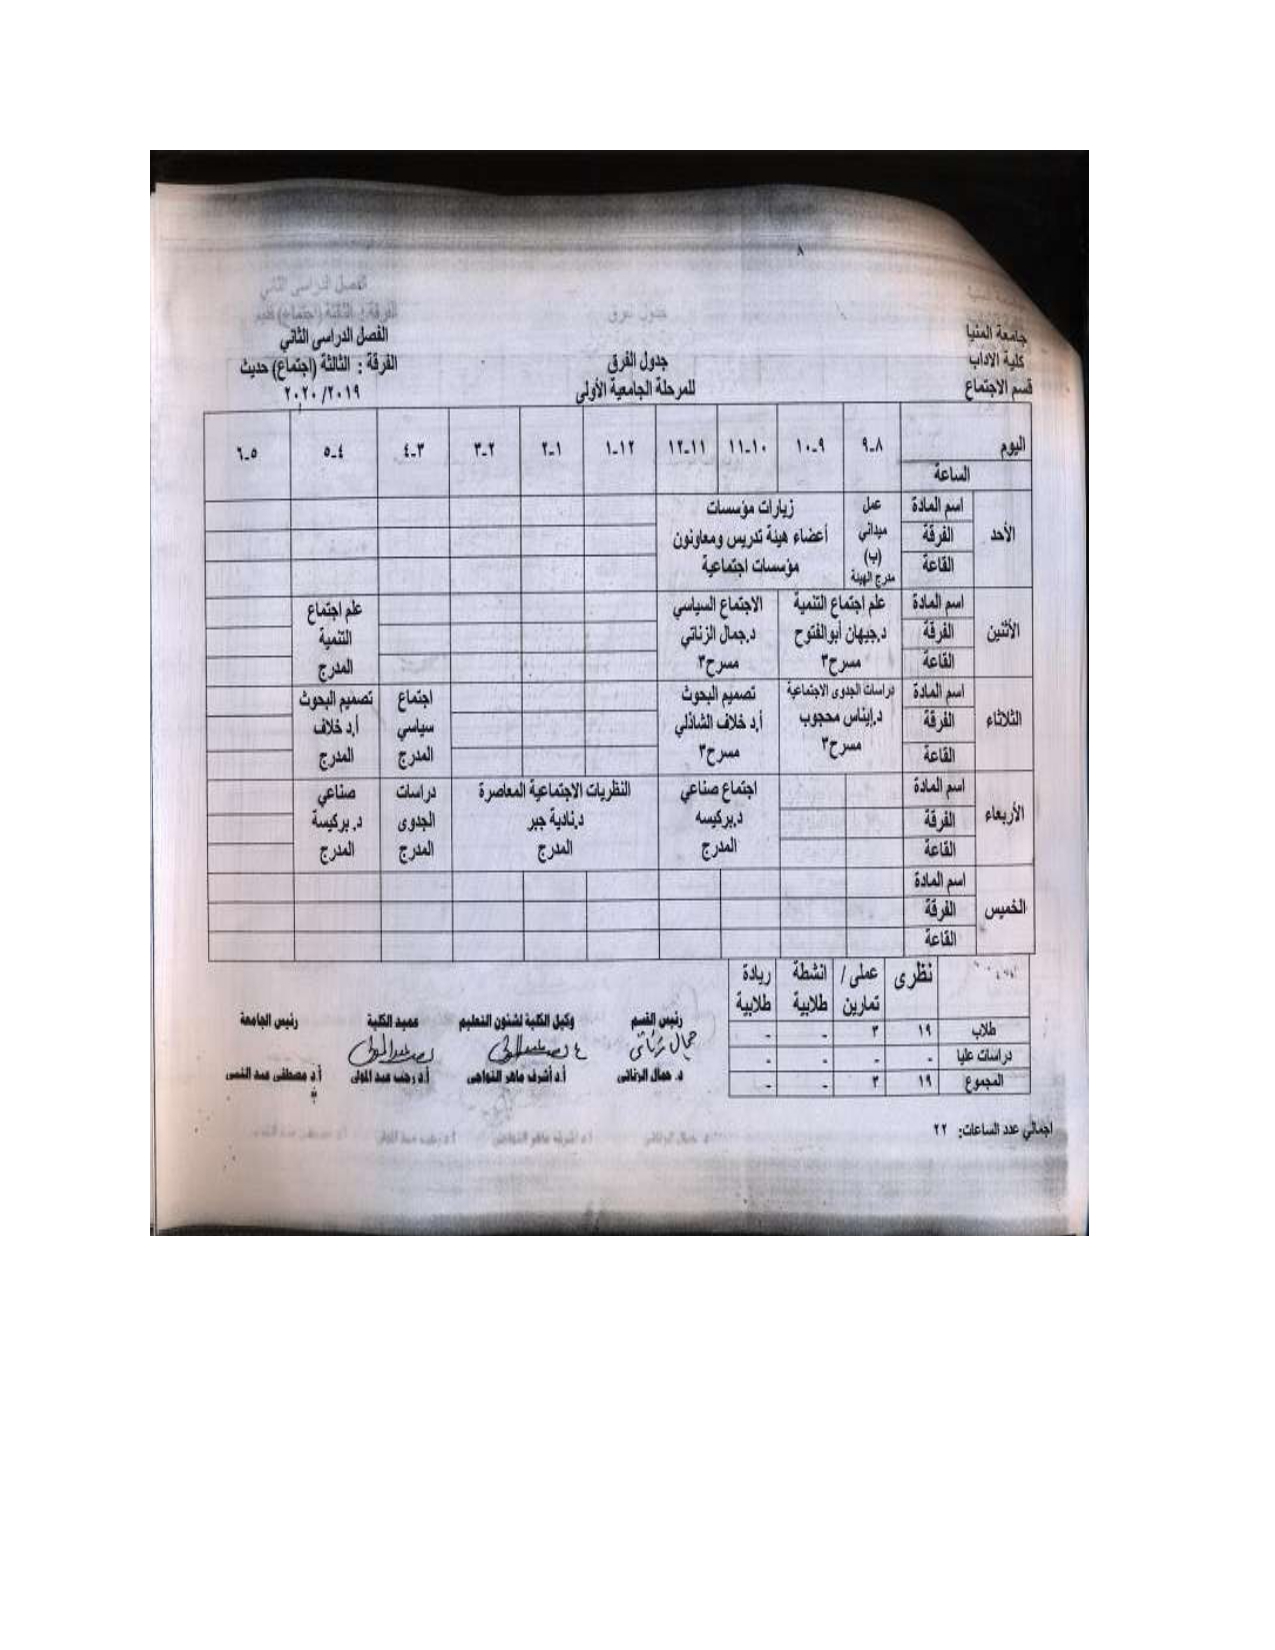 ٨
جامعة المنيا
كلية الاداب
قسم الاجتماع
جدول الفرق
للمرحلة الجامعية الأولى
الفصل الدراسى الثاني
الفرقة : الثالثة (اجتماع) حديث
٢٠٢٠/٢٠١٩
اليوم ٨-٩ ٩-١٠ ١٠-١١ ١١-١٢ ١٢-١ ١-٢ ٢-٣ ٣-٤ ٤-٥ ٥-٦
الساعة
الأحد
اسم المادة
الفرقة
القاعة
عمل
ميداني
(ب)
مدرج الهيئة
زيارات مؤسسات
أعضاء هيئة تدريس ومعاونون
مؤسسات اجتماعية
الأثنين
اسم المادة
الفرقة
القاعة
علم اجتماع التنمية
د.جيهان أبوالفتوح
مسرح٣
الاجتماع السياسي
د.جمال الزناتي
مسرح٣
علم اجتماع
التنمية
المدرج
الثلاثاء
اسم المادة
الفرقة
القاعة
دراسات الجدوى الاجتماعية
د.إيناس محجوب
مسرح٣
تصميم البحوث
أ.د خلاف الشاذلي
مسرح٣
اجتماع
سياسي
المدرج
تصميم البحوث
أ.د خلاف
المدرج
الأربعاء
اسم المادة
الفرقة
القاعة
اجتماع صناعي
د.بركيسه
المدرج
النظريات الاجتماعية المعاصرة
د.نادية جبر
المدرج
دراسات
الجدوى
المدرج
صناعي
د.بركيسة
المدرج
الخميس
اسم المادة
الفرقة
القاعة
نظرى عملى / تمارين انشطة طلابية ريادة طلابية
طلاب ١٩ ٣ - -
دراسات عليا - - - -
المجموع ١٩ ٣ - -
اجمالي عدد الساعات: ٢٢
رئيس القسم
جمال زناتى
د. جمال الزناتى
وكيل الكلية لشئون التعليم
أ.د أشرف ماهر النواجى
عميد الكلية
أ.د رجب عبد المولى
رئيس الجامعة
أ.د مصطفى عبد النبى